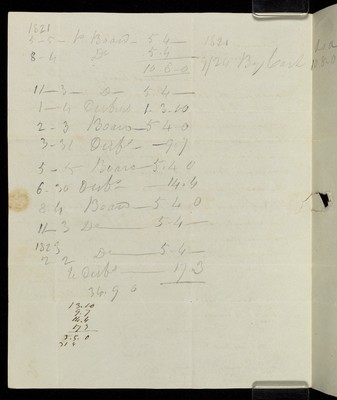 1821
5-5- To Board- 5.4-
8-4 Do 5.4-
10.8.0
1821
By Cash 10.8.0
11-3- Do 5.4-
1-4 Disbts 1.3.10
2-3 Board 5.4.0
3-31 Disbts -9.7
5-5 Board 5.4.0
6.30 Disbts 14.4
8.4 Board 5.4.0
11-3 Do 5.4-
1823
2 2 Do 5.4-
to Disbts 17.3
34.9.0
1.3.10
9.7
14.4
17.3
3.5.0
31 4